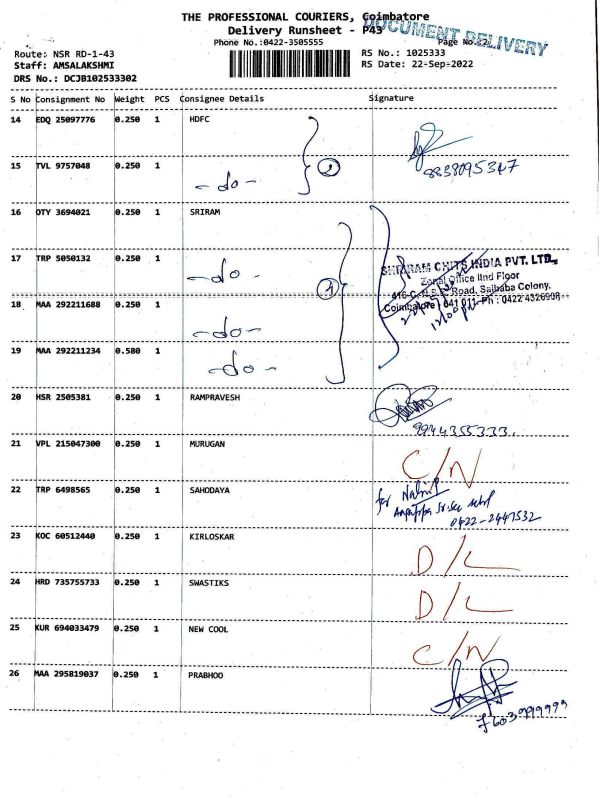 THE PROFESSIONAL COURIERS, Coimbatore
Delivery Runsheet - P43
DOCUMENT DELIVERY
Phone No.:0422-3505555
Page No.:2
Route: NSR RD-1-43
RS No.: 1025333
Staff: AMSALAKSHMI
RS Date: 22-Sep-2022
DRS No.: DCJB102533302
S No Consignment No Weight PCS Consignee Details Signature
14 EDQ 25097776 0.250 1 HDFC
15 TVL 9757048 0.250 1 -do- 2
16 OTY 3694021 0.250 1 SRIRAM
17 TRP 5050132 0.250 1 -do-
SHRIRAM CHITS INDIA PVT. LTD.,
Zonal Office IInd Floor
4
416-C, N.S.R. Road, Saibaba Colony,
18 MAA 292211688 0.250 1 -do-
Coimbatore - 641 011. Ph : 0422 4326908
19 MAA 292211234 0.580 1 -do-
20 HSR 2505381 0.250 1 RAMPRAVESH
9944355333.
21 VPL 215047300 0.250 1 MURUGAN C/N
22 TRP 6498565 0.250 1 SAHODAYA
for
0422-2447532
23 KOC 60512440 0.250 1 KIRLOSKAR D/L
24 HRD 735755733 0.250 1 SWASTIKS D/L
25 KUR 694033479 0.250 1 NEW COOL C/N
26 MAA 295819037 0.250 1 PRABHOO